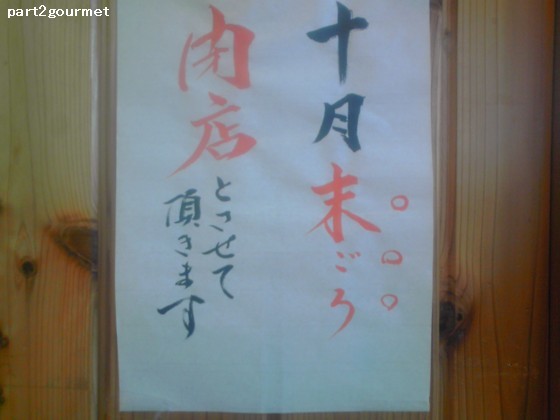 part2gourmet
十月末ごろ
閉店とさせて
頂きます